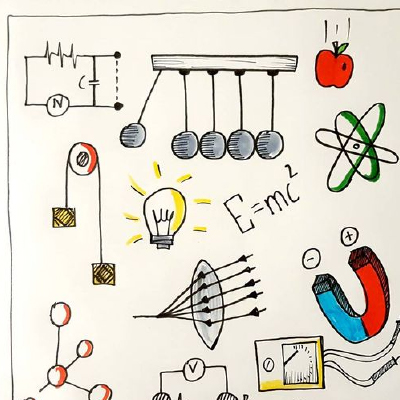 C
N
E=mc²
-
+
V